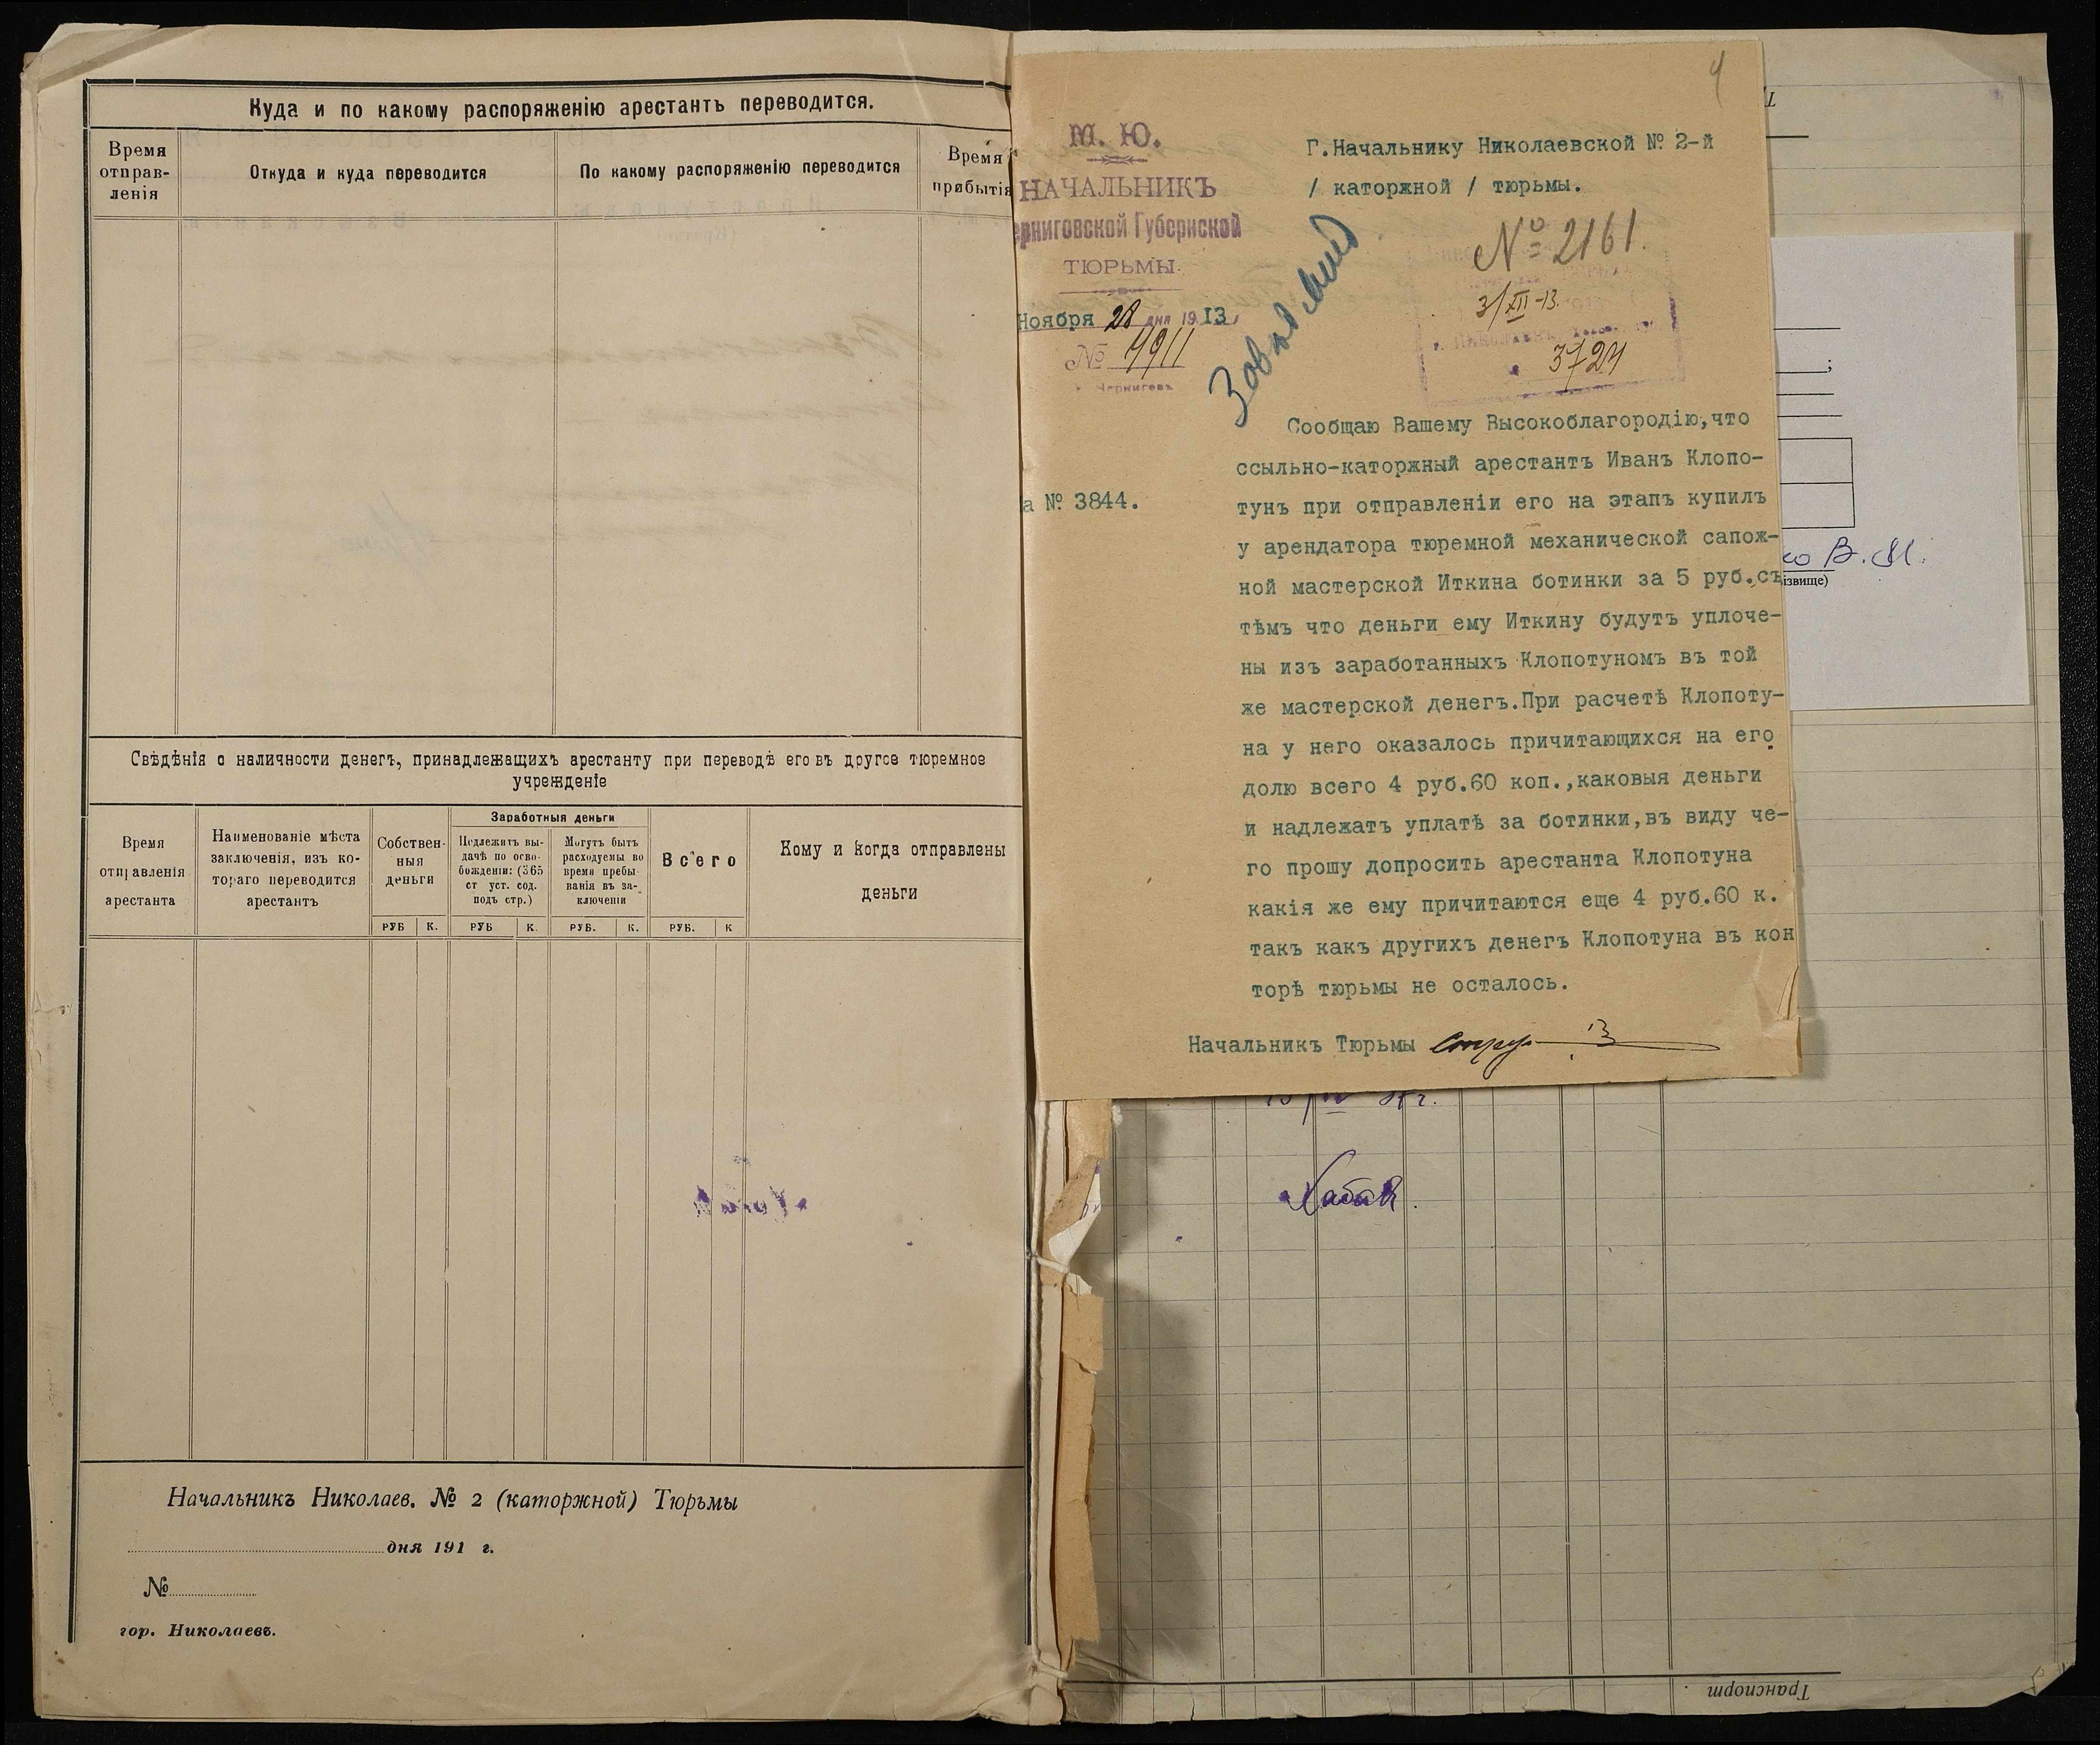 Куда и по какому распоряженію арестантъ переводится.
Время
отправ-
ленія
Откуда и куда переводится
По какому распоряженію переводится
Время
прибытія
Свѣдѣнія о наличности денегъ, принадлежащихъ арестанту при переводѣ его въ другое тюремное
учрежденіе
Время
отправленія
арестанта
Наименованіе мѣста
заключенія, изъ ко-
тораго переводится
арестантъ
Собствен-
ныя
деньги
Заработныя деньги
Подлежитъ вы-
дачѣ по осво-
божденіи: (365
ст уст. сод.
подъ стр.)
Могутъ быть
расходуемы во
время пребы-
ванія въ за-
ключеніи
Всего
Кому и когда отправлены
деньги
РУБ К. РУБ К. РУБ. К. РУБ. К
Начальникъ Николаев. № 2 (каторжной) Тюрьмы
дня 191 г.
№
гор. Николаевъ.
4
М. Ю.
НАЧАЛЬНИКЪ
ерниговской Губернской
ТЮРЬМЫ.
Ноября 28 дня 1913
№ 4911
г. Черниговъ
а № 3844.
Г.Начальнику Николаевской № 2-й
/ каторжной / тюрьмы.
№ 2161.
3/XII-13.
3724
Сообщаю Вашему Высокоблагородію,что
ссыльно-каторжный арестантъ Иванъ Клопо-
тунъ при отправленіи его на этапъ купилъ
у арендатора тюремной механической сапож-
ной мастерской Иткина ботинки за 5 руб.съ
тѣмъ что деньги ему Иткину будутъ уплоче-
ны изъ заработанныхъ Клопотуномъ въ той
же мастерской денегъ.При расчетѣ Клопоту-
на у него оказалось причитающихся на его
долю всего 4 руб.60 коп.,каковыя деньги
и надлежатъ уплатѣ за ботинки,въ виду че-
го прошу допросить арестанта Клопотуна
какія же ему причитаются еще 4 руб.60 к.
такъ какъ другихъ денегъ Клопотуна въ кон
торѣ тюрьмы не осталось.
Начальникъ Тюрьмы
ко В.М.
ізвище)
Транспорт